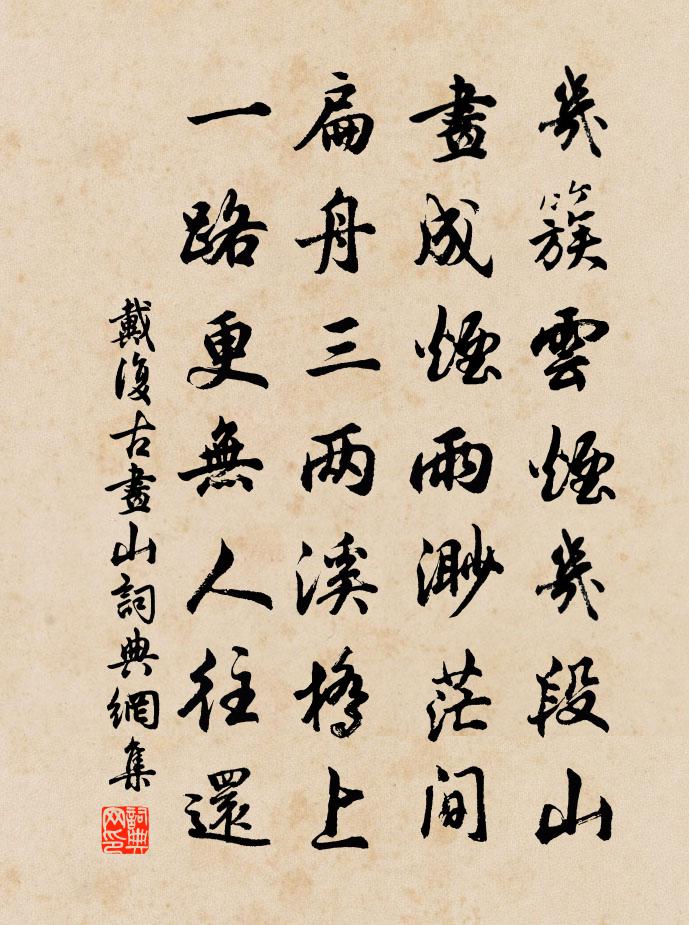 幾簇雲煙幾段山
畫成煙雨渺茫間
扁舟三两溪橋上
一路更無人往還
戴復古畫山詞典網集
詞典网印